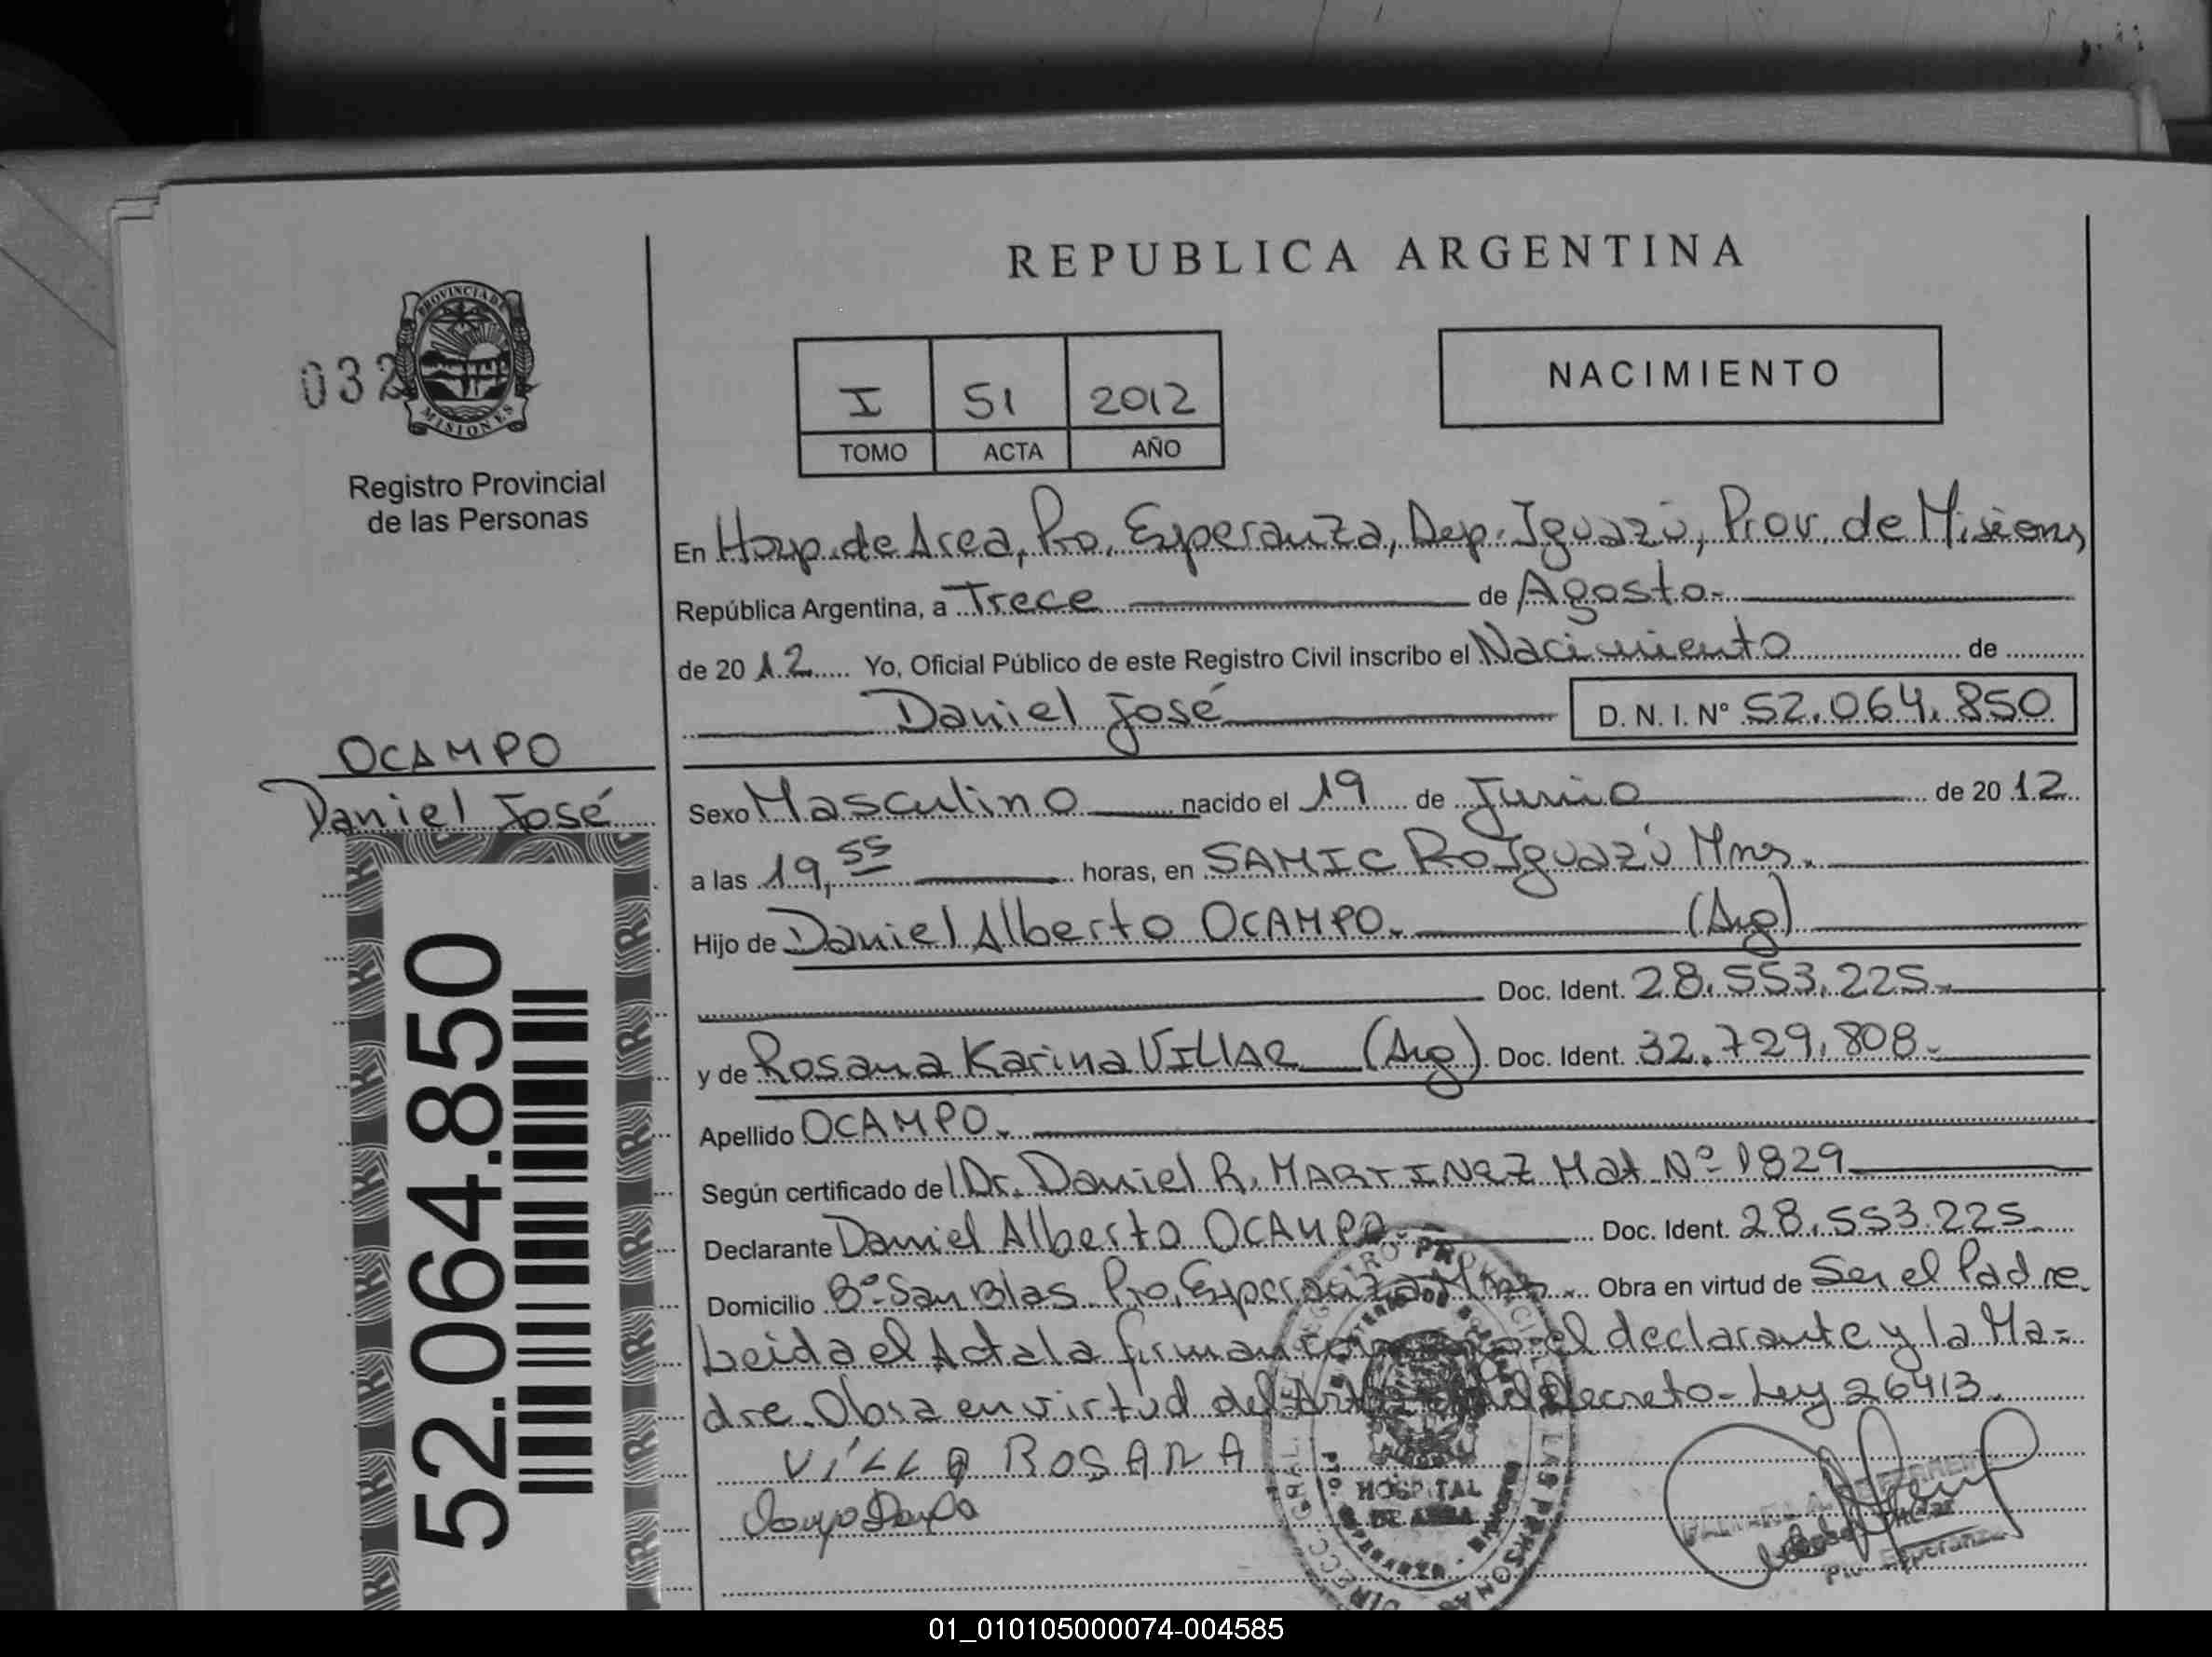 REPUBLICA ARGENTINA
032
PROVINCIA DE
MISIONES
Registro Provincial
de las Personas
I 51 2012
TOMO ACTA AÑO
NACIMIENTO
En Hosp. de Area, Pto. Esperanza, Dep. Iguazú, Prov. de Misiones,
República Argentina, a Trece de Agosto.-
de 2012 Yo, Oficial Público de este Registro Civil inscribo el Nacimiento de
Daniel José D. N. I. N° 52.064.850
OCAMPO
Daniel José
52.064.850
Sexo Masculino nacido el 19 de Junio de 2012
a las 19,55 horas, en SAMIC Pto Iguazú Mnes.
Hijo de Daniel Alberto OCAMPO. (Arg)
Doc. Ident. 28.553.225.-
y de Rosana Karina VILLAR (Arg) Doc. Ident. 32.729.808.-
Apellido OCAMPO.
Según certificado del Dr. Daniel R. MARTINEZ Mat. N° 1829
Declarante Daniel Alberto OCAMPO.- Doc. Ident. 28.553.225
Domicilio B° San Blas Pto. Esperanza Mnes. Obra en virtud de Ser el Padre
Leida el Acta la firman el declarante y la Ma-
dre. Obra en virtud del Decreto-Ley 26413.
ROSANA
HOSPITAL
DE AREA
Esperanza
01_010105000074-004585